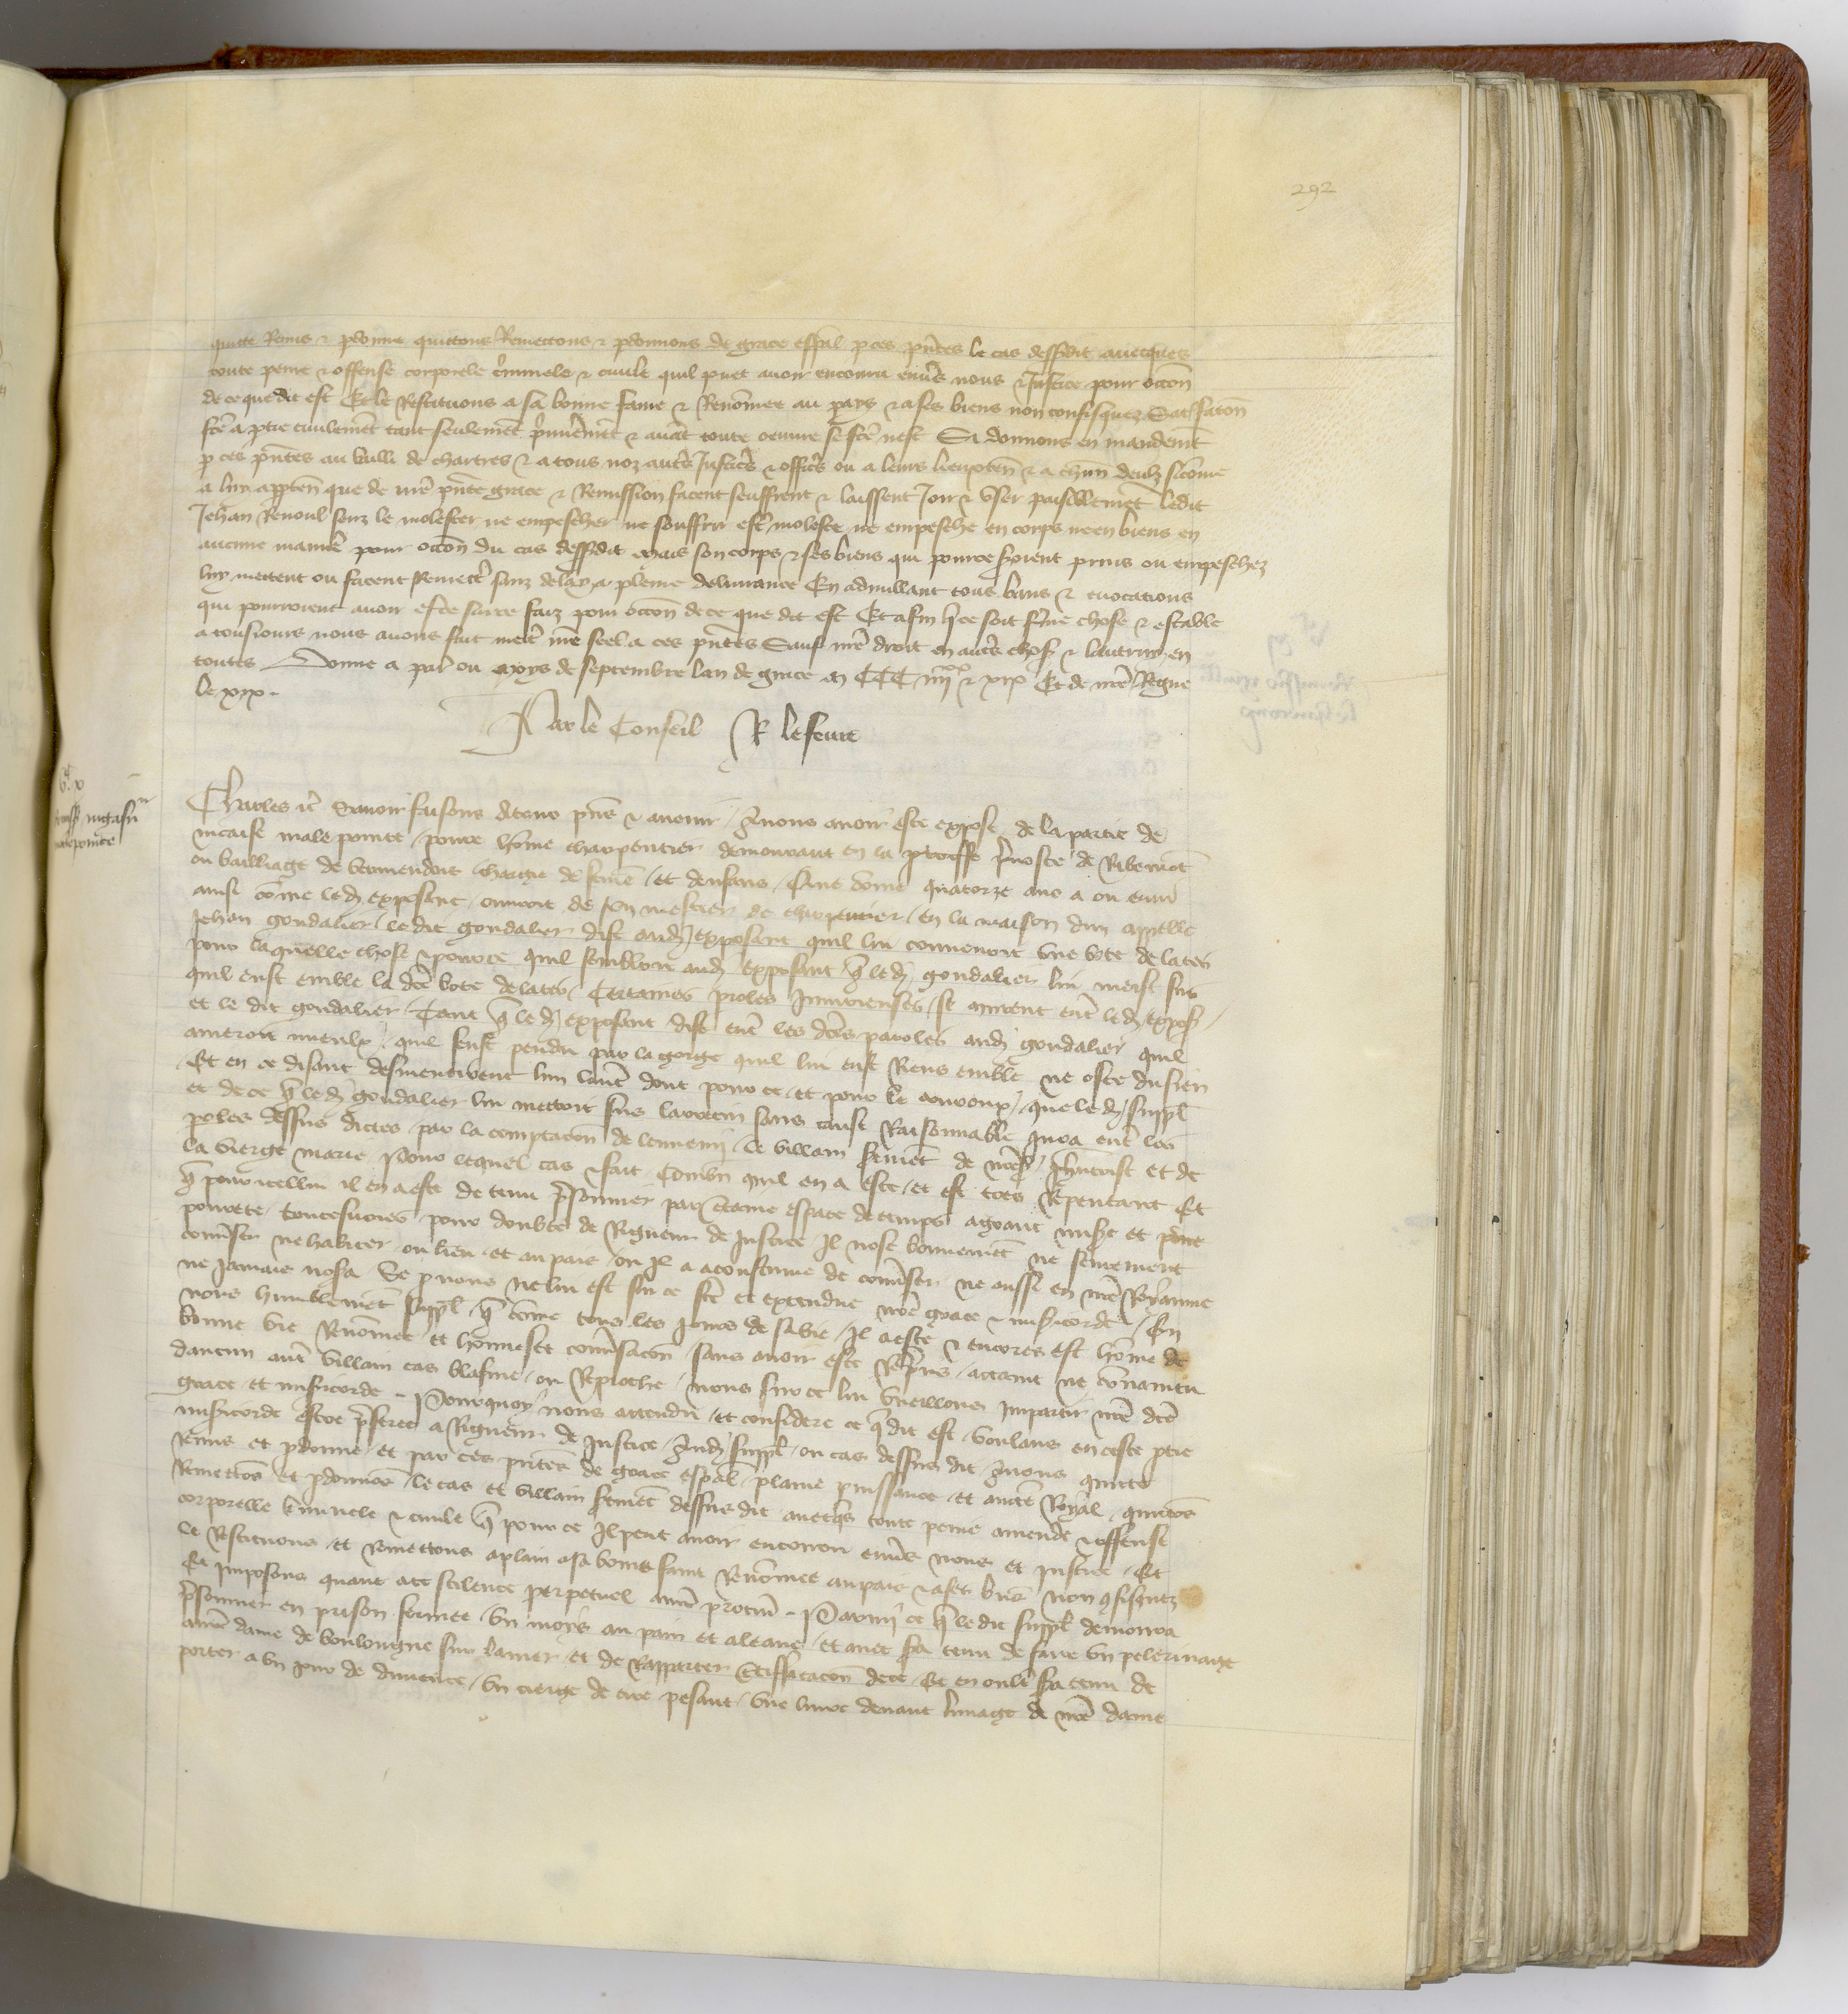 292
quitte Remis & pdonne quittons Remettons & pdonnons de grace esspal p ces pntes le cas dessusdit auecques
toute peine & offense corporele criminele & ciuile quil puet auoir encouru enuers nous & Justice pour occon
de ce que dit est Et le Restituons a sa bonne fame & Renomee au pays & a ses biens non confisquez Satisfacon
fcte a ptie ciuilemet tant seulemet premieremet & auat toute oeuure se fcte nest Si donnons en mandemet
p ces pntes au bailli de chartres & a tous noz autres Justiciers & officiers ou a leurs lieuxten & a chun deulz sicome
a luy apptien que de nre pnte grace & Remission facent seuffrent & laissent Joir & vser paisiblemet ledit
Jehan Renoul senz le molester ne empescher ne souffrir estre moleste ne empesche en corps ne en biens en
aucune maniere pour occon du cas dessusdit mais son corps & ses biens qui pource seroient prins ou empeschez
luy mettent ou facent Remettre sanz delay a pleine deliurance En adnullant tous bans & euocations
qui pourroient auoir este sur ce faiz pour occon de ce que dit est Et afin q ce soit ferme chose & estable
a tousiours nous auons fait mettre nre seel a ces pntes Sauf nre droit en autres choses & lautruy en
toutes Donne a paris ou moys de septembre lan de grace m CCC iiijxx & xix Et de nre Regne
le xix.
Par le Conseil R lefeure
Remiss nicasii
malepointe
Charles &c Sauoir faisons a tous pns & auenir A nous auoir este expose de la partie de
nicaise malepointe poure home charpentier demourant en la preuoste de Ribemont
ou bailliage de vermendois chargie de feme et denfans Que come quatorze ans a ou enuiron
ainsi come led exposant ouuroit de son mestier de charpentier en la maison dun appelle
Jehan gondalier ledit gondalier dist aud exposant quil lui conuenoit vne bote de lates
pour laquelle chose & pource quil sembloit aud exposant q led gondalier lui meist sus
quil eust emble la dce bote de lates Certaines proles Iniurieuses se murent entre led expos
et le dit gondalier Tant q led exposant dist entre les dces paroles aud gondalier quil
ameroit mieulx quil feust pendu par la gorge quil lui eust Riens emble ne oste du sien
Et en ce disant desmentirent lun lautre dont pour ce et pour le courroux que led suppl
et de ce q led gondalier lui mettoit sus larrecin sans cause Raisonnable jura entre les
proles dessus dictes par la temptacon de lennemi le villain serment de nres Jhucrist et de
la vierge marie Pour lequel cas & fait Combn quil en a este et est tres Repentant Et
q pour icellui il en a este detenu prisonnier par certaine espace de temps
pourete toutesuoies pour doubte de Rigueur de Justice Il nose bonnement ne seurement
conuerser ne habiter ou lieu et au pais ou Il a acoustume de conuerser ne aussi en nre Royaume
ne jamais nosa Se p nous ne lui est sur ce fcte et extendue nre grace & misicorde En
nous humblemet suppl q come tous les jours de sa vie Il a este & encores est home de
bonne vie Renomee et honneste conuersacon sans auoir este Reprins attaint ne conuaincu
daucun autre villain cas blasme ou Reproche nous sur ce lui vueillons Impartir nre dce
grace et misicorde Pourquoy nous attendu et considere ce q dit est voulans en ceste ptie
misicorde estre preferee a Rigueur de Justice Aud suppl ou cas dessus dit Auons quitte
Remis et pdonne et par ces pntes de grace espal plaine puissance et aucte Royal quittos
Remettos et pdonnos le cas et villain serment dessus dit auecqs toute peine amende & offense
corporelle criminele & ciuile q pour ce Il peut auoir encouru enuers nous et justice Et
le Restituons et Remettons a plain a sa bonne fame Renomee au pais & a ses biens non gfisquez
Et Imposons quant a ce scilence perpetuel a nre procur Parmi ce q le dit suppl demourra
prisonnier en prison fermee vn mois au pain et a leaue et auec sera tenu de faire vn pelerinage
a nre dame de boulongne sur la mer et de Rapporter certifficacon de ce Et en oultre sera tenu de
porter a vn jour de dimenche vn cierge de cire pesant vne liure deuant limage de nre dame